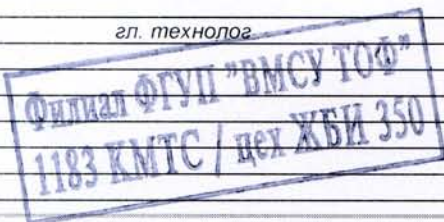 гл. технолог
Филиал ФГУП "ВМСУ ТОФ"
1183 КМТС / цех ЖБИ 350